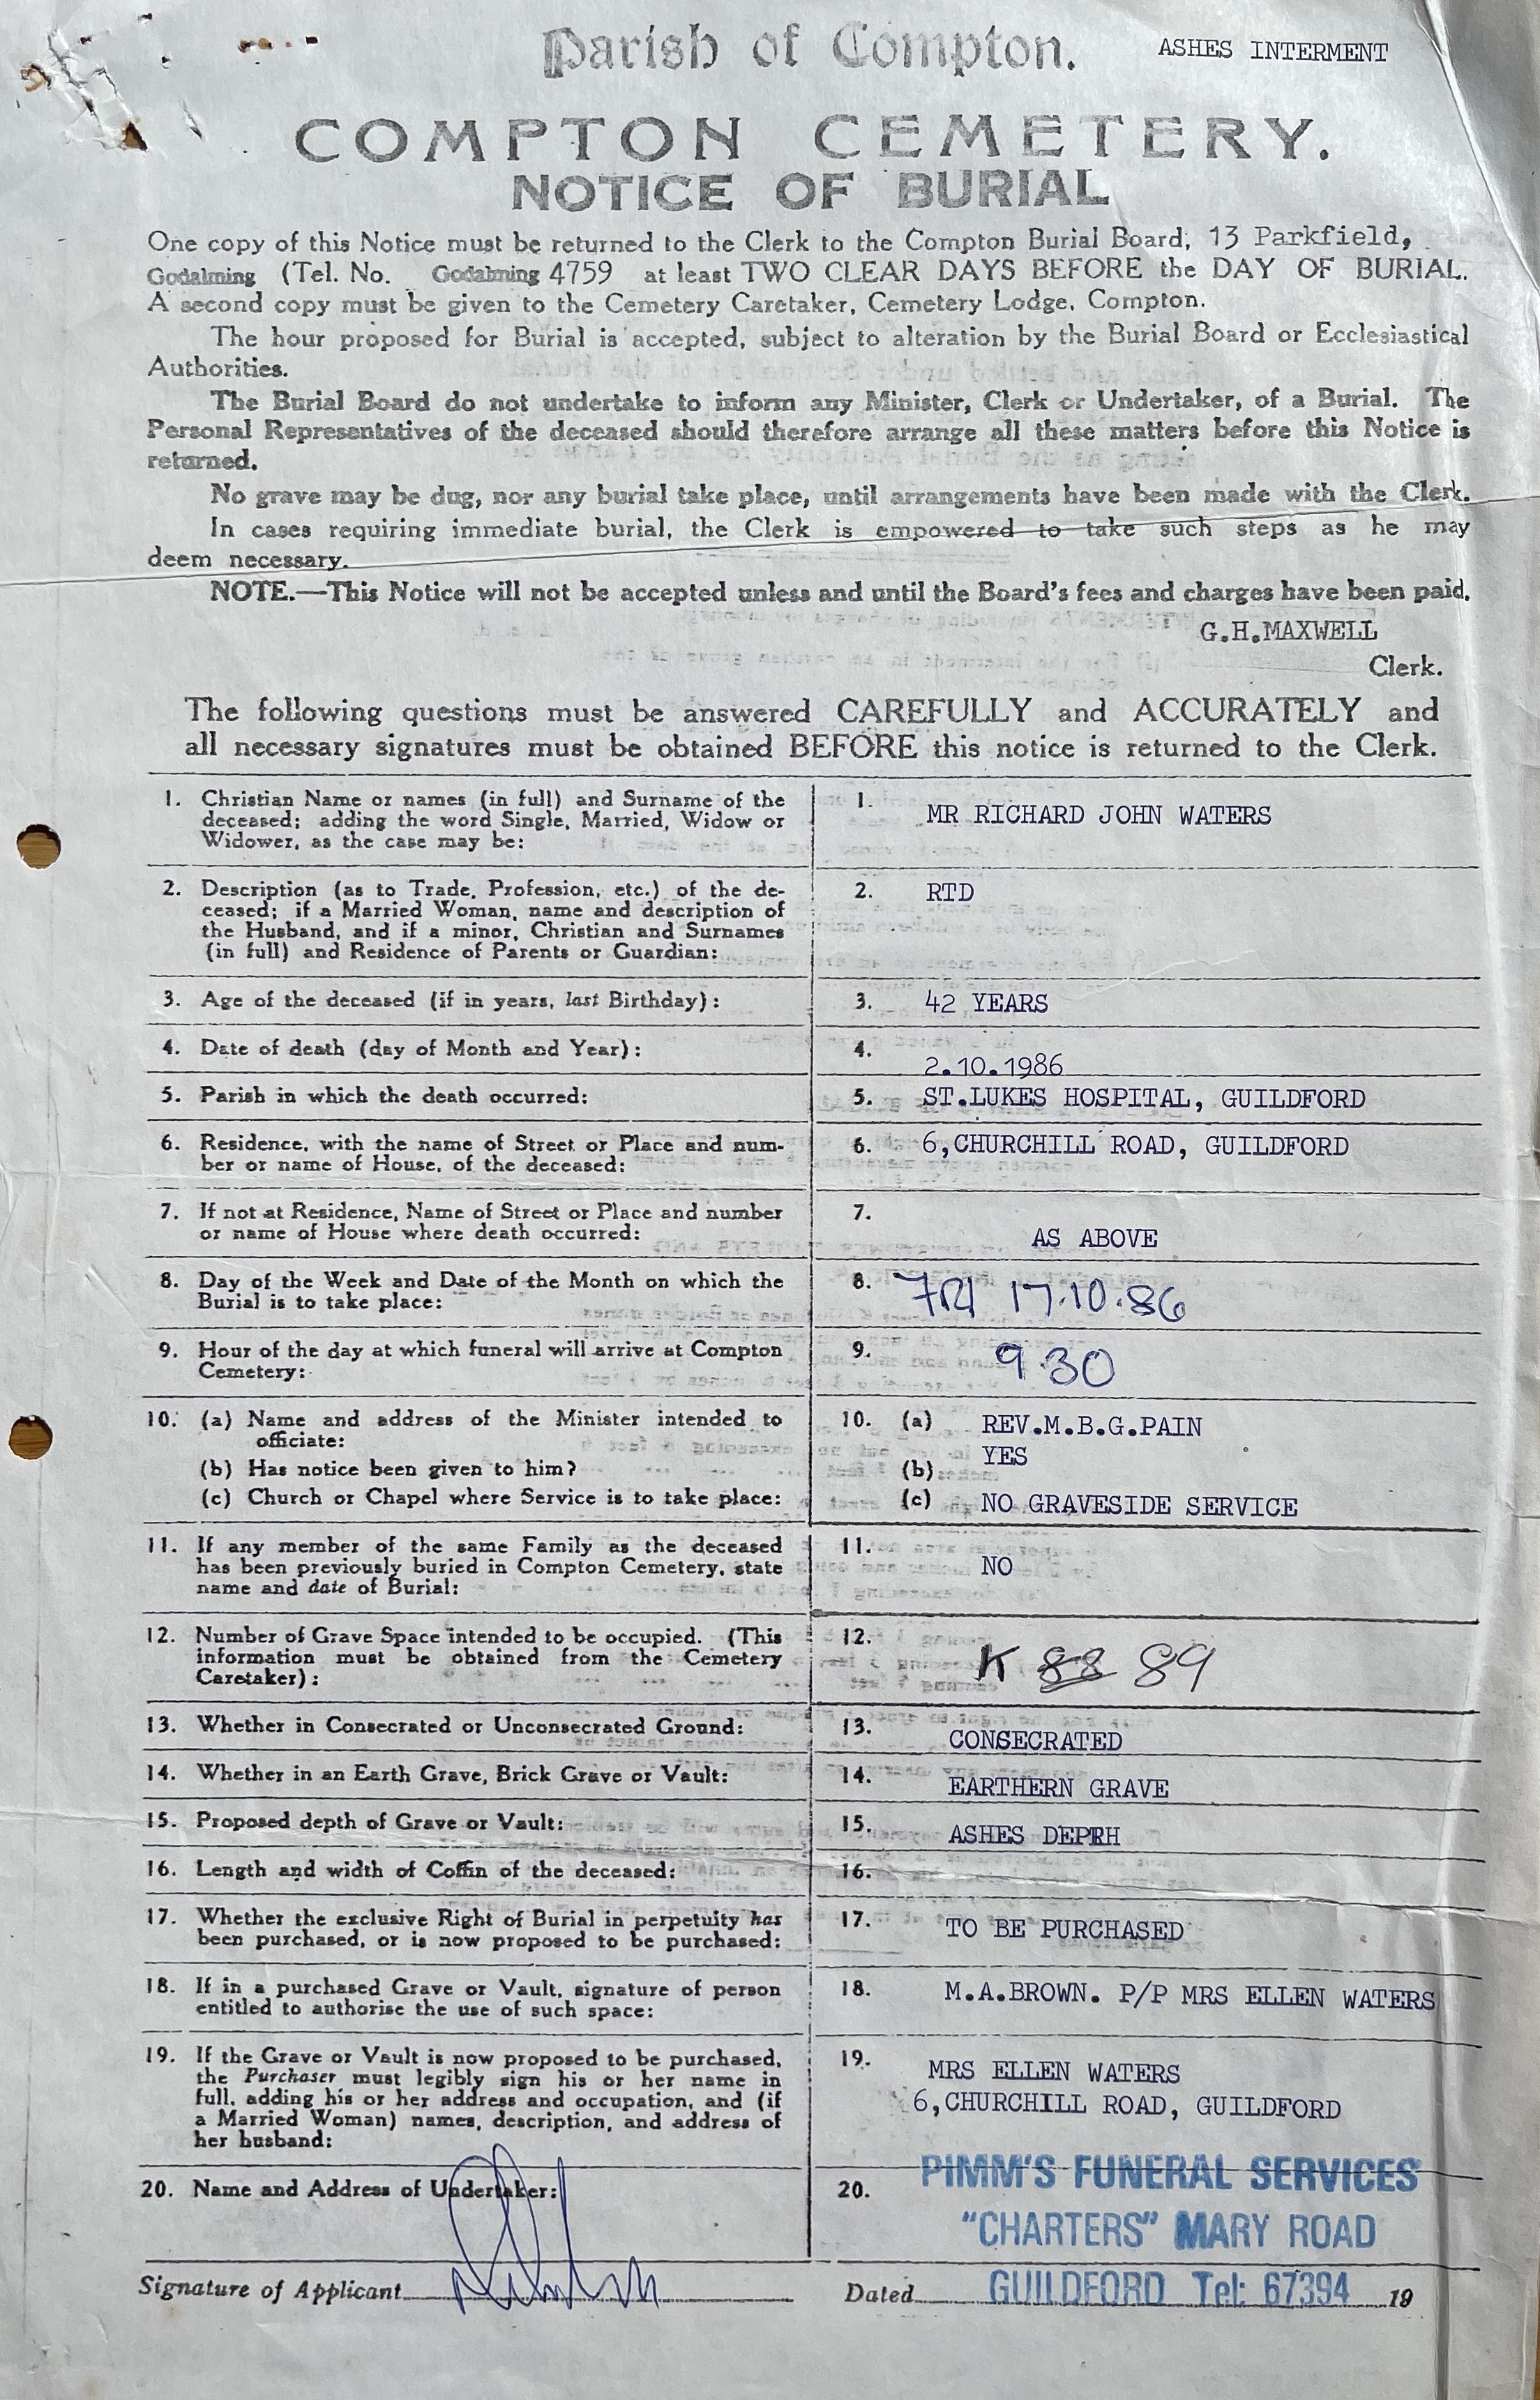 Parish of Compton.
ASHES INTERMENT
COMPTON CEMETERY.
NOTICE OF BURIAL
One copy of this Notice must be returned to the Clerk to the Compton Burial Board, 13 Parkfield,
Godalming (Tel. No. Godalming 4759 at least TWO CLEAR DAYS BEFORE the DAY OF BURIAL.
A second copy must be given to the Cemetery Caretaker, Cemetery Lodge, Compton.
The hour proposed for Burial is accepted, subject to alteration by the Burial Board or Ecclesiastical
Authorities.
The Burial Board do not undertake to inform any Minister, Clerk or Undertaker, of a Burial. The
Personal Representatives of the deceased should therefore arrange all these matters before this Notice is
returned.
No grave may be dug, nor any burial take place, until arrangements have been made with the Clerk.
In cases requiring immediate burial, the Clerk is empowered to take such steps as he may
deem necessary.
NOTE.—This Notice will not be accepted unless and until the Board's fees and charges have been paid.
G.H.MAXWELL
Clerk.
The following questions must be answered CAREFULLY and ACCURATELY and
all necessary signatures must be obtained BEFORE this notice is returned to the Clerk.
1. Christian Name or names (in full) and Surname of the
deceased; adding the word Single, Married, Widow or
Widower, as the case may be:
1. MR RICHARD JOHN WATERS
2. Description (as to Trade, Profession, etc.) of the de-
ceased; if a Married Woman, name and description of
the Husband, and if a minor, Christian and Surnames
(in full) and Residence of Parents or Guardian:
2. RTD
3. Age of the deceased (if in years, last Birthday):
3. 42 YEARS
4. Date of death (day of Month and Year):
4. 2.10.1986
5. Parish in which the death occurred:
5. ST.LUKES HOSPITAL, GUILDFORD
6. Residence, with the name of Street or Place and num-
ber or name of House, of the deceased:
6. 6,CHURCHILL ROAD, GUILDFORD
7. If not at Residence, Name of Street or Place and number
or name of House where death occurred:
7. AS ABOVE
8. Day of the Week and Date of the Month on which the
Burial is to take place:
8. FRI 17.10.86
9. Hour of the day at which funeral will arrive at Compton
Cemetery:
9. 9.30
10. (a) Name and address of the Minister intended to
officiate:
(b) Has notice been given to him?
(c) Church or Chapel where Service is to take place:
10. (a) REV.M.B.G.PAIN
(b) YES
(c) NO GRAVESIDE SERVICE
11. If any member of the same Family as the deceased
has been previously buried in Compton Cemetery, state
name and date of Burial:
11. NO
12. Number of Grave Space intended to be occupied. (This
information must be obtained from the Cemetery
Caretaker):
12. K 88 89
13. Whether in Consecrated or Unconsecrated Ground:
13. CONSECRATED
14. Whether in an Earth Grave, Brick Grave or Vault:
14. EARTHERN GRAVE
15. Proposed depth of Grave or Vault:
15. ASHES DEPTH
16. Length and width of Coffin of the deceased:
16.
17. Whether the exclusive Right of Burial in perpetuity has
been purchased, or is now proposed to be purchased:
17. TO BE PURCHASED
18. If in a purchased Grave or Vault, signature of person
entitled to authorise the use of such space:
18. M.A.BROWN. P/P MRS ELLEN WATERS
19. If the Grave or Vault is now proposed to be purchased,
the Purchaser must legibly sign his or her name in
full, adding his or her address and occupation, and (if
a Married Woman) names, description, and address of
her husband:
19. MRS ELLEN WATERS
6,CHURCHILL ROAD, GUILDFORD
20. Name and Address of Undertaker:
20. PIMM'S FUNERAL SERVICES
"CHARTERS" MARY ROAD
GUILDFORD Tel: 67394
Signature of Applicant
Dated 19